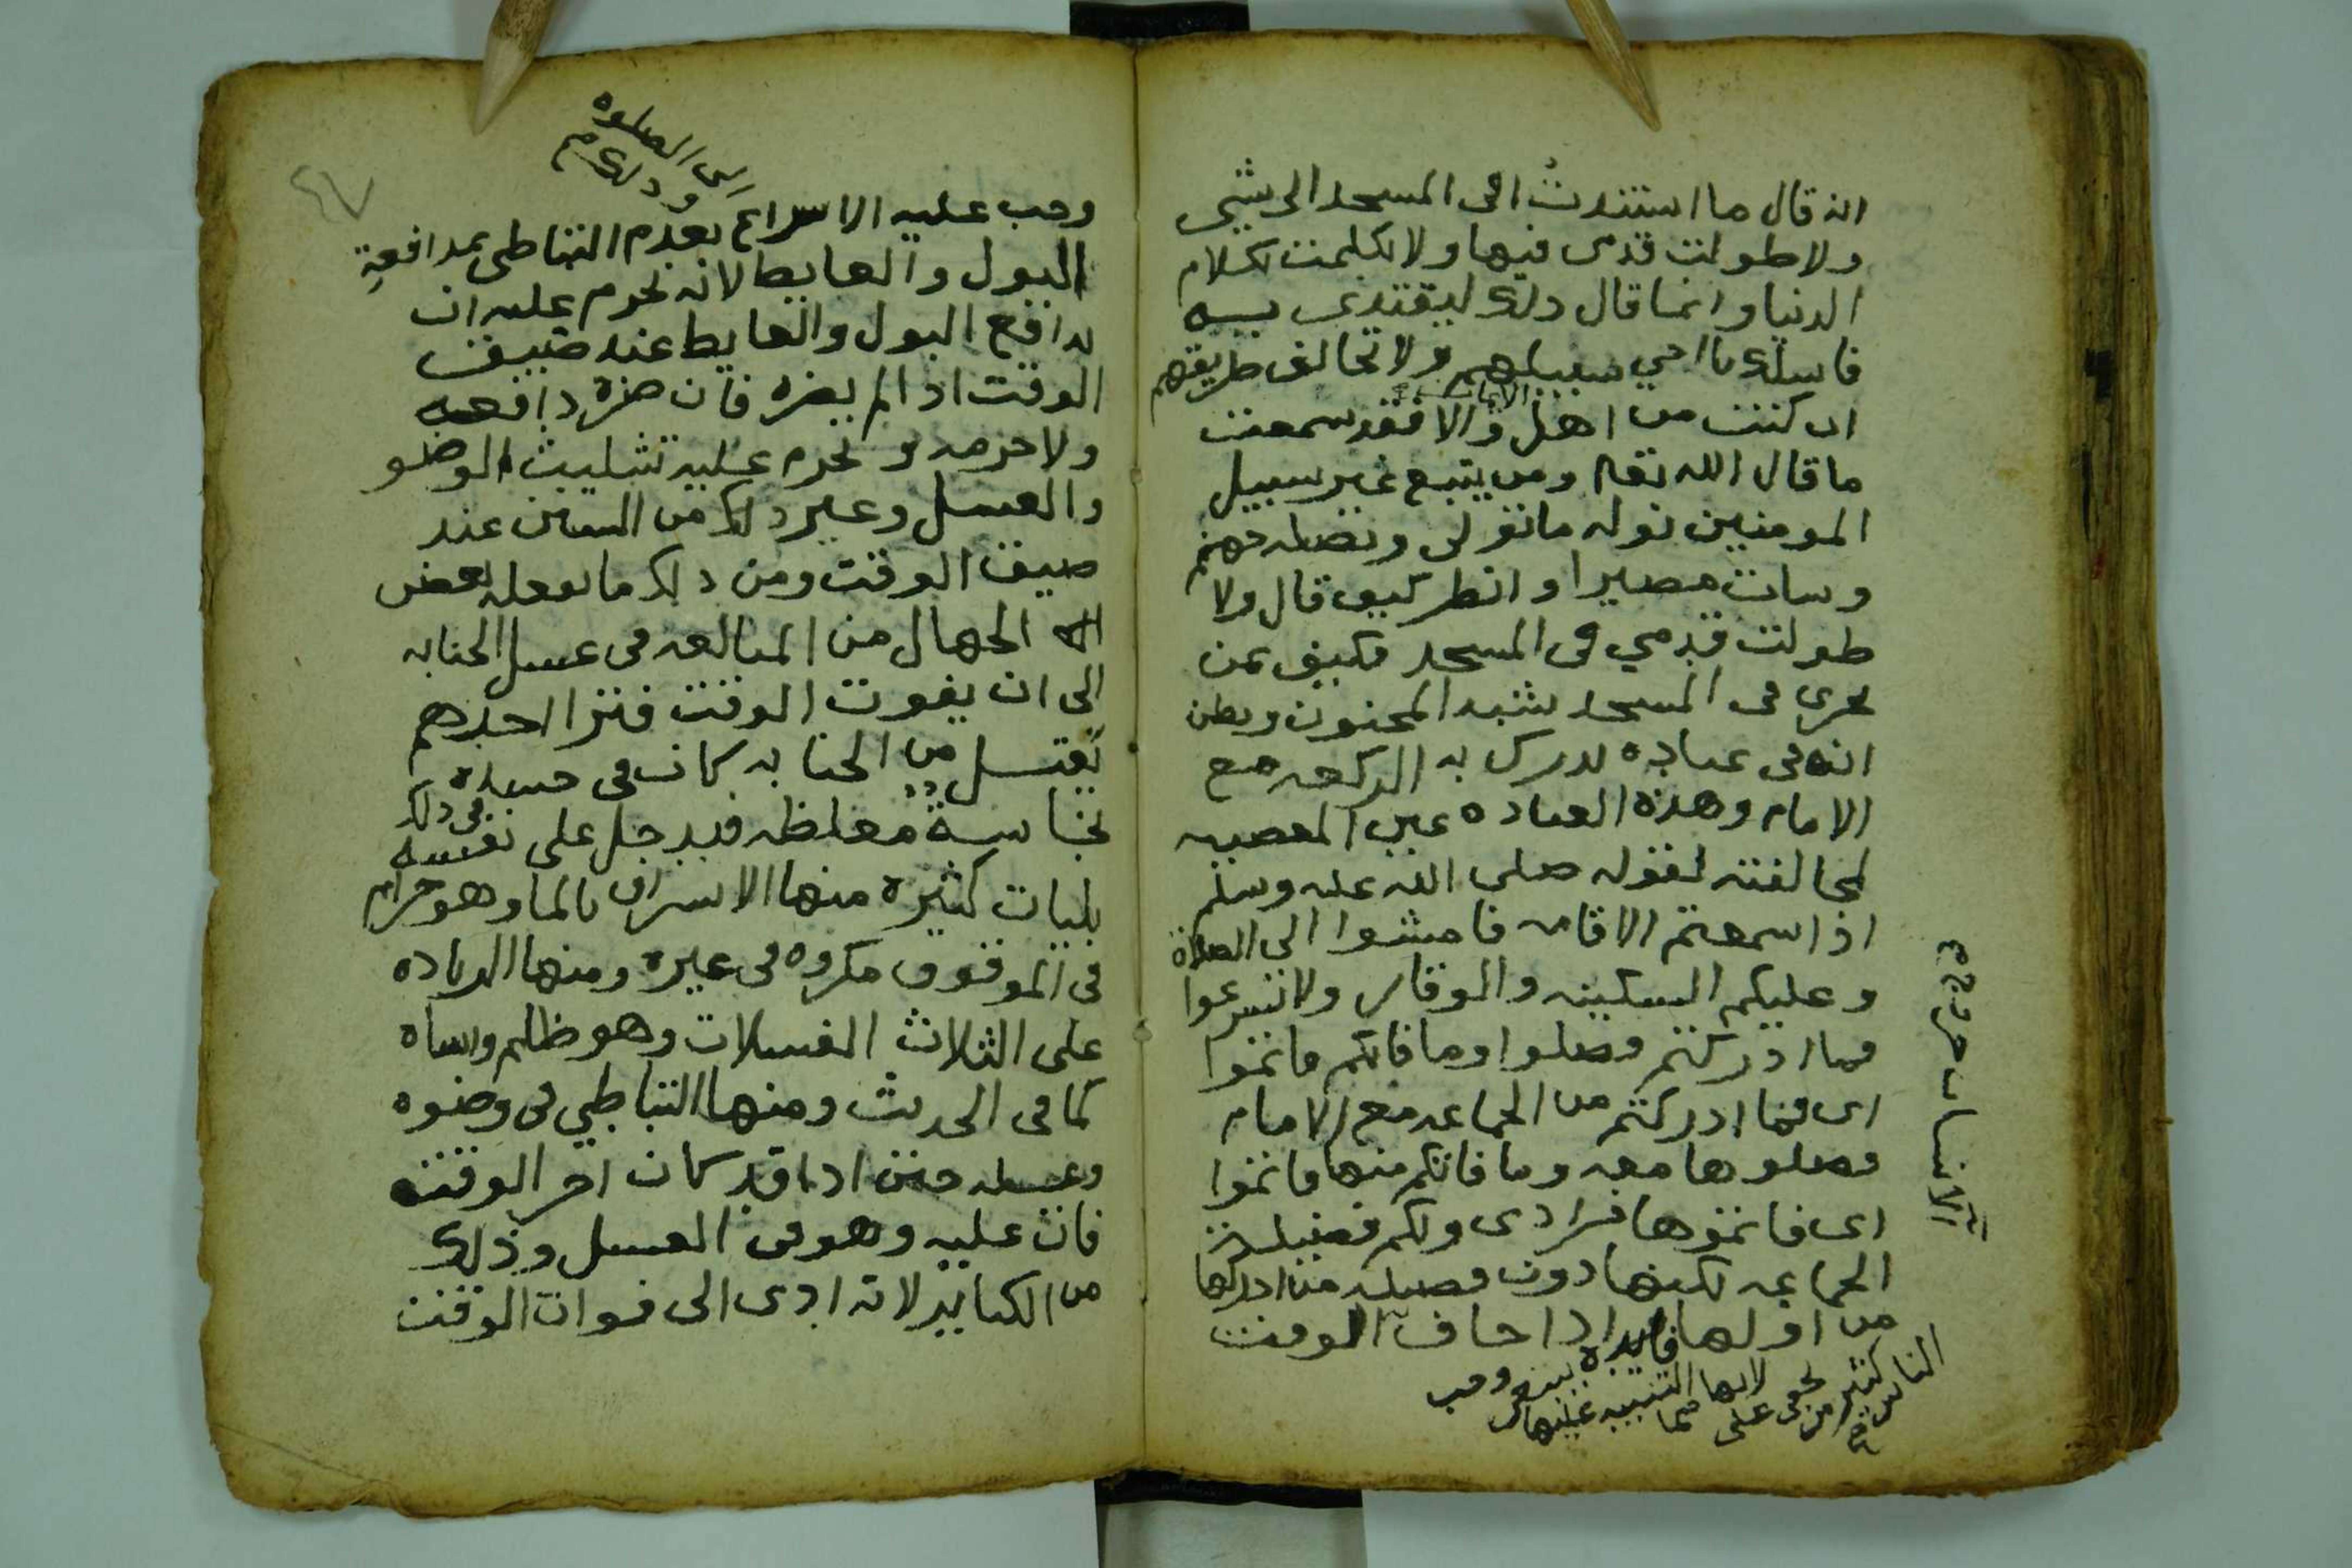 انه قال ما استندت في المسجد الى شي
ولا طولت قدمى فيها ولا تكلمت بكلام
الدنيا وانما قال ذلك ليقتدى به
فاسلك يا اخي سبيلهم ولا تخالف طريقهم
ان كنت من اهل والا فقد سمعت
ما قال الله تعا ومن يتبع غير سبيل
المومنين نوله ما تولى ونصله جهنم
وسات مصيرا وانظر كيف قال ولا
طولت قدمي في المسجد فكيف بمن
يجرى في المسجد يشبه المجنون ويظن
انه في عباده يدرك به الركعه مع
الامام وهذه العباده عين المعصيه
لمخالفته لقوله صلى الله عليه وسلم
اذا سمعتم الاقامه فامشوا الى الصلاة
وعليكم السكينه والوقار ولا تسرعوا
فما ادركتم فصلوا وما فاتكم فاتموا
اى فما ادركتم من الجماعه مع الامام
فصلوها معه وما فاتكم منها فاتموا
اى فاتموها فرادى ولكم فضيلة
الجماعه لكنها دون فضيله من ادركها
من اولها فايده اذا خاف الوقت
ينبغي التنبيه عليها لانها مما يخفى على كثير من الناس
وجب
وجب عليه الاسراع بعدم التباطى بمدافعة
الى الصلوه وذلك
البول والغايط لانه يحرم عليه ان
يدافع البول والغايط عند ضيق
الوقت اذا لم يضره فان ضره دافعه
ولا حرمه ويحرم عليه تثليث الوضو
والغسل وغير ذلك من السنن عند
ضيق الوقت ومن ذلك ما يفعله بعض
الجهال من المبالغه في غسل الجنابه
الى ان يفوت الوقت فترا احدهم
يغتسل من الجنابه كان في جسده
نجاسة مغلظه فيدخل على نفسه في ذلك
بليات كثيره منها الاسراف بالما وهو حرام
في الموقوف مكروه في غيره ومنها الزياده
على الثلاث الغسلات وهو ظلم واساه
كما في الحديث ومنها التباطي في وضوه
وغسله حتى اذا قد كان اخر الوقت
فات عليه وهو في الغسل وذلك
من الكباير لانه ادى الى فوات الوقت